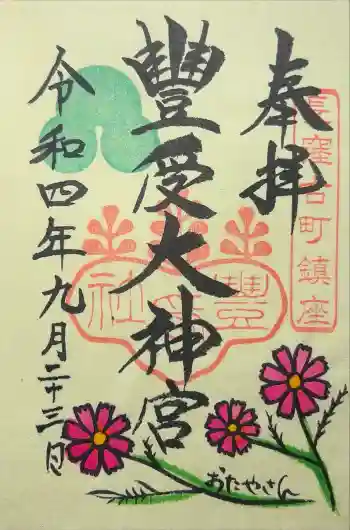 長窪古町鎮座
奉拝
豐受大神宮
豐受社
令和四年九月二十三日
おたやさん